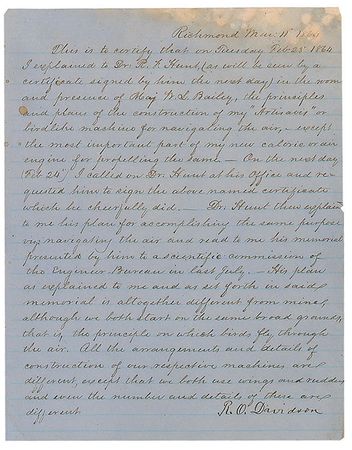 Richmond Mar: 11th 1864
This is to certify that on Tuesday Feb 23d 1864
I explained to Dr. R. F. Hunt (as will be seen by a
certificate signed by him the next day) in the room
and presence of Maj W. S. Bailey, the principles
and plans of the construction of my "Artisavis" or
birdlike machine for navigating the air,—except
the most important part of my new caloric or air
engine for propelling the same.— On the next day
(Feb 24th) I called on Dr. Hunt at his Office and re-
quested him to sign the above named certificate
which he cheerfully did.— Dr. Hunt then explain
to me his plan for accomplishing the same purpose
viz; navigating the air and read to me his memorial
presented by him to a scientific commission of
the Engineer Bureau in last July.— His plan
as explained to me and as set forth in said
memorial is altogether different from mine,
although we both start on the same broad ground,
that is, the principle on which birds fly through
the air. All the arrangements and details of
construction of our respective machines are
different, except that we both use wings and rudder,
and even the number and details of these are
different
R. O. Davidson